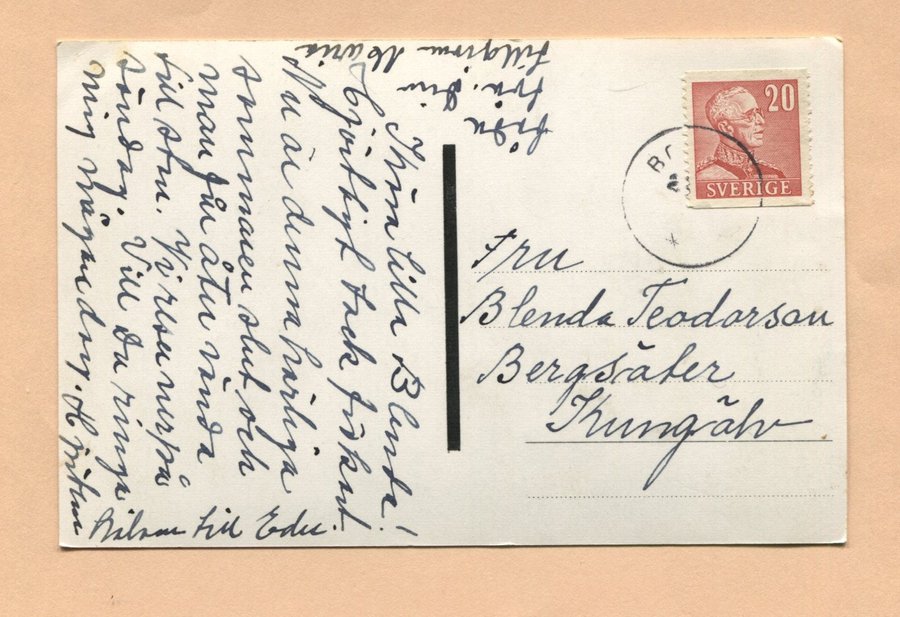 Kära lilla Blenda!
Hjärtligt tack för kort
Nu är denna härliga
sommaren slut och
man får åter vända
till stan. Vi resa ner på
söndag. Vill du ringa
mig någon dag. Hjärtliga
hälsn till Eder.
Båda
från Din
Maria
20
SVERIGE
BO
Fru
Blenda Teodorson
Bergsäter
Kungälv